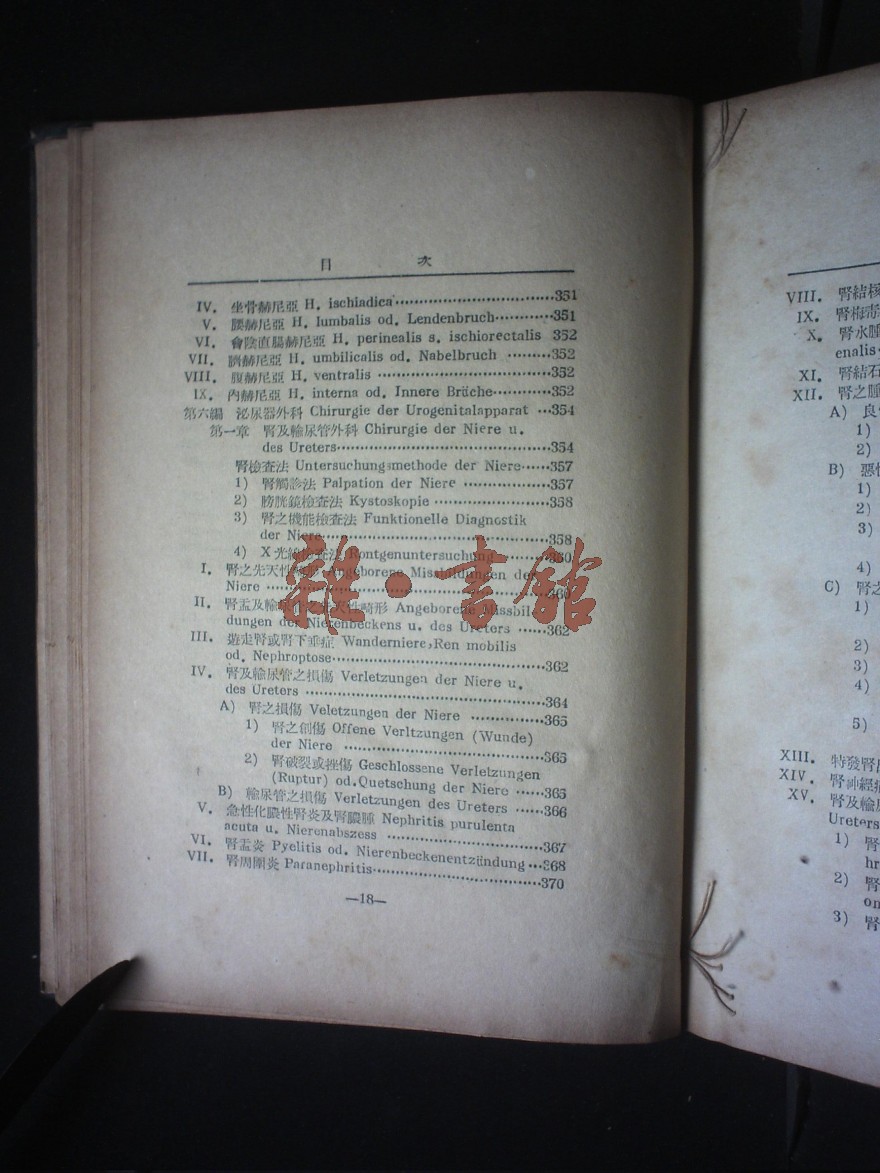 目 次
IV. 坐骨赫尼亞 H. ischiadica⋯⋯351
V. 腰赫尼亞 H. lumbalis od. Lendenbruch⋯⋯351
VI. 會陰直腸赫尼亞 H. perinealis s. ischiorectalis 352
VII. 臍赫尼亞 H. umbilicalis od. Nabelbruch ⋯⋯352
VIII. 腹赫尼亞 H. ventralis ⋯⋯352
IX. 內赫尼亞 H. interna od. Innere Brüche⋯⋯352
第六編 泌尿器外科 Chirurgie der Urogenitalapparat ⋯354
第一章 腎及輸尿管外科 Chirurgie der Niere u.
des Ureters⋯⋯354
腎檢查法 Untersuchungsmethode der Niere⋯⋯357
1) 腎觸診法 Palpation der Niere ⋯⋯357
2) 膀胱鏡檢查法 Kystoskopie ⋯⋯358
3) 腎之機能檢查法 Funktionelle Diagnostik
der Niere⋯⋯358
4) X光線檢查法 Rontgenuntersuchung⋯⋯360
I. 腎之先天性畸形 Angeborene Missbildungen der
Niere ⋯⋯360
II. 腎盂及輸尿管之先天性畸形 Angeborene Missbil-
dungen der Nierenbeckens u. des Ureters ⋯⋯362
III. 遊走腎或腎下垂症 Wanderniere,Ren mobilis
od. Nephroptose⋯⋯362
IV. 腎及輸尿管之損傷 Verletzungen der Niere u.
des Ureters ⋯⋯364
A) 腎之損傷 Veletzungen der Niere ⋯⋯365
1) 腎之創傷 Offene Verltzungen (Wunde)
der Niere ⋯⋯365
2) 腎破裂或挫傷 Geschlossene Verletzungen
(Ruptur) od.Quetschung der Niere ⋯⋯365
B) 輸尿管之損傷 Verletzungen des Ureters ⋯⋯366
V. 急性化膿性腎炎及腎膿腫 Nephritis purulenta
acuta u. Nierenabszess ⋯⋯367
VI. 腎盂炎 Pyelitis od. Nierenbeckenentzündung ⋯368
VII. 腎周圍炎 Paranephritis⋯⋯370
—18—
雜·書館
VIII. 腎結核
IX. 腎梅毒
X. 腎水腫
enalis
XI. 腎結石
XII. 腎之腫
A) 良
1)
2)
B) 惡性
1)
2)
3)
4)
C) 腎之
1)
2)
3)
4)
5)
XIII. 特發腎
XIV. 腎神經痛
XV. 腎及輸尿
Ureters
1) 腎
hr
2) 腎
on
3) 腎